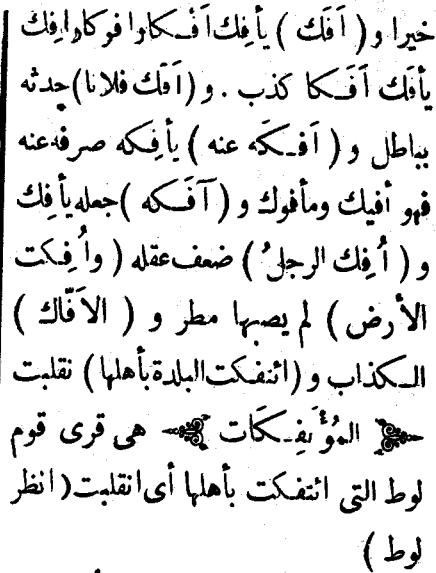 خيرا و ( أَفَك ) يأفِك أَفْكا وافوكا وافِك
يأفَك أَفَكا كذب . و (أفَك فلانا) حدثه
بباطل و ( أَفَكَه عنه ) يأفِكه صرفه عنه
فهو أفيك ومأفوك و ( آفَكه ) جعله يأفِك
و ( أُفِك الرجلُ ) ضعف عقله ( وأُفِكت
الأرض ) لم يصبها مطر و ( الأفّاك )
الكذاب و ( ائتفكت البلدة بأهلها ) نقلبت
المُؤْتَفِكَات هى قرى قوم
لوط التى ائتفكت بأهلها أى انقلبت ( انظر
لوط )